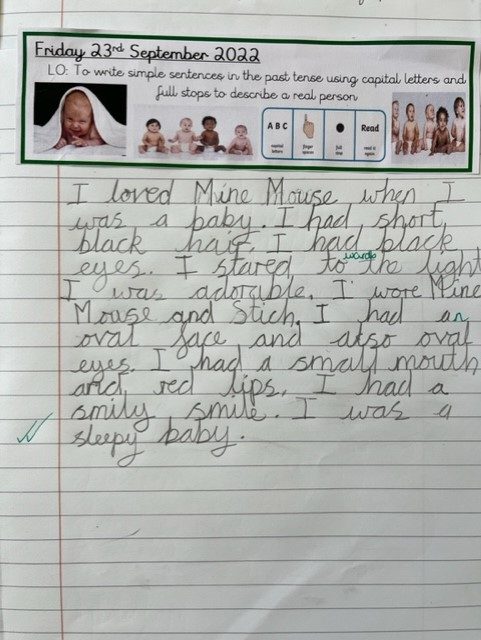 Friday 23rd September 2022
LO: To write simple sentences in the past tense using capital letters and
full stops to describe a real person
A B C
Read
capital letters
finger spaces
full stop
read it again
I loved Mine Mouse when I
was a baby. I had short
black hair. I had black
eyes. I stared towards the light
I was adorable. I wore Mine
Mouse and Stich. I had an
oval face and also oval
eyes. I had a small mouth
and red lips. I had a
smily smile. I was a
sleepy baby.